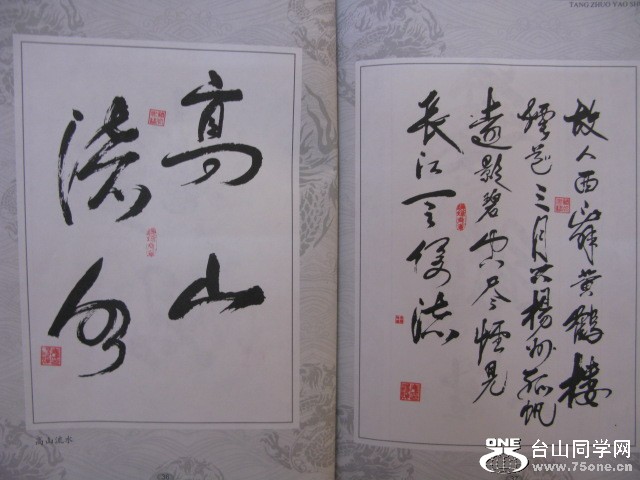 高山
流水
高山流水
TANG ZHUO YAO SH
故人西辞黄鶴楼
煙花三月下楊州孤帆
遠影碧空尽惟見
長江天際流
ONE
台山同学网
www.75one.cn